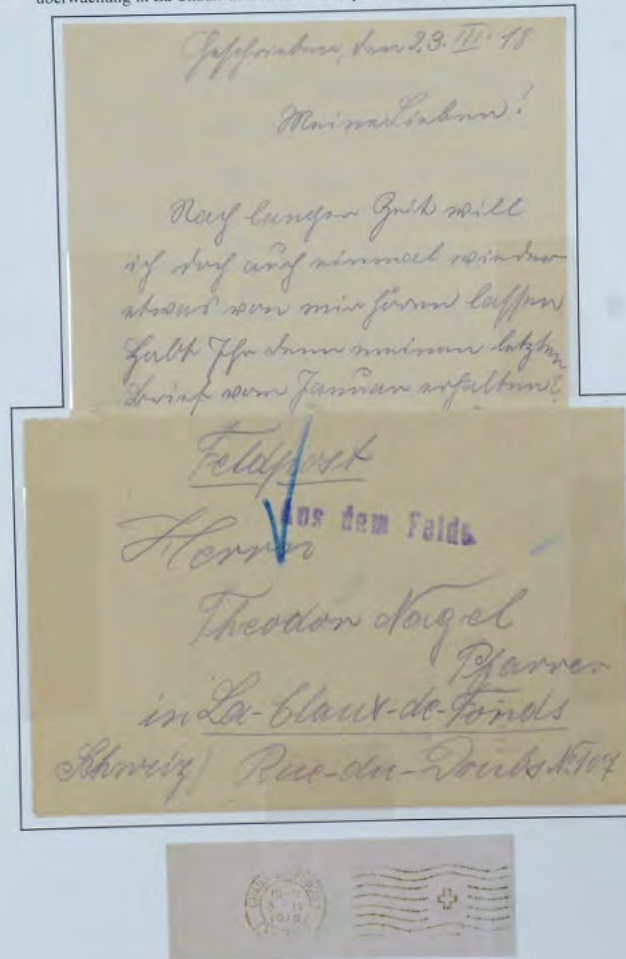 überwachung in La
Geschrieben, den 23. III. 18
Meine Lieben!
Nach langer Zeit will
ich doch auch einmal wieder
etwas von mir hören lassen
Habt Ihr denn meinen letzten
Brief vom Januar erhalten?
Feldpost
Aus dem Felde.
Herrn
Theodor Nagel
Pfarrer
in La-Claux-de-Fonds
Schweiz) Rue-du-Doubs No. 107